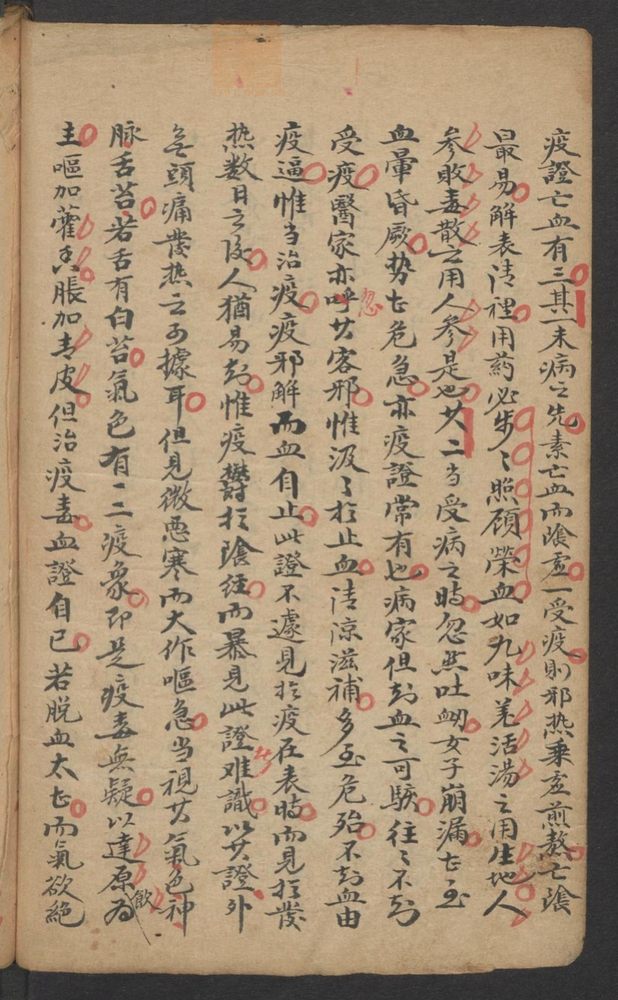 疫證亡血有三其一未病之先素亡血而陰虛一受疫則邪热乘虛煎熬亡陰
最易解表清裡用药必步〻照顾榮血如九味羌活湯之用生地人
参敗毒散之用人參是也其二当受病之時忽然吐衄女子崩漏甚至
血暈昏厥势甚危急亦疫證常有也病家但知血之可駭往〻不知
受疫醫家亦呼其客邪惟汲〻於止血清凉滋補多至危殆不知血由
忽
疫逼惟当治疫疫邪解而血自止此證不遽見於疫在表時而見於發
热数日之後人猶易知惟疫欝於陰経而暴見此證难識以其證外
無頭痛發热之可據耳但見微悪寒而大作嘔急当視其氣色神
脉舌苔若舌有白苔氣色有一二疫象即是疫毒無疑以達原為
飲
主嘔加藿香脹加青皮但治疫毒血證自已若脱血太甚而氣欲絶